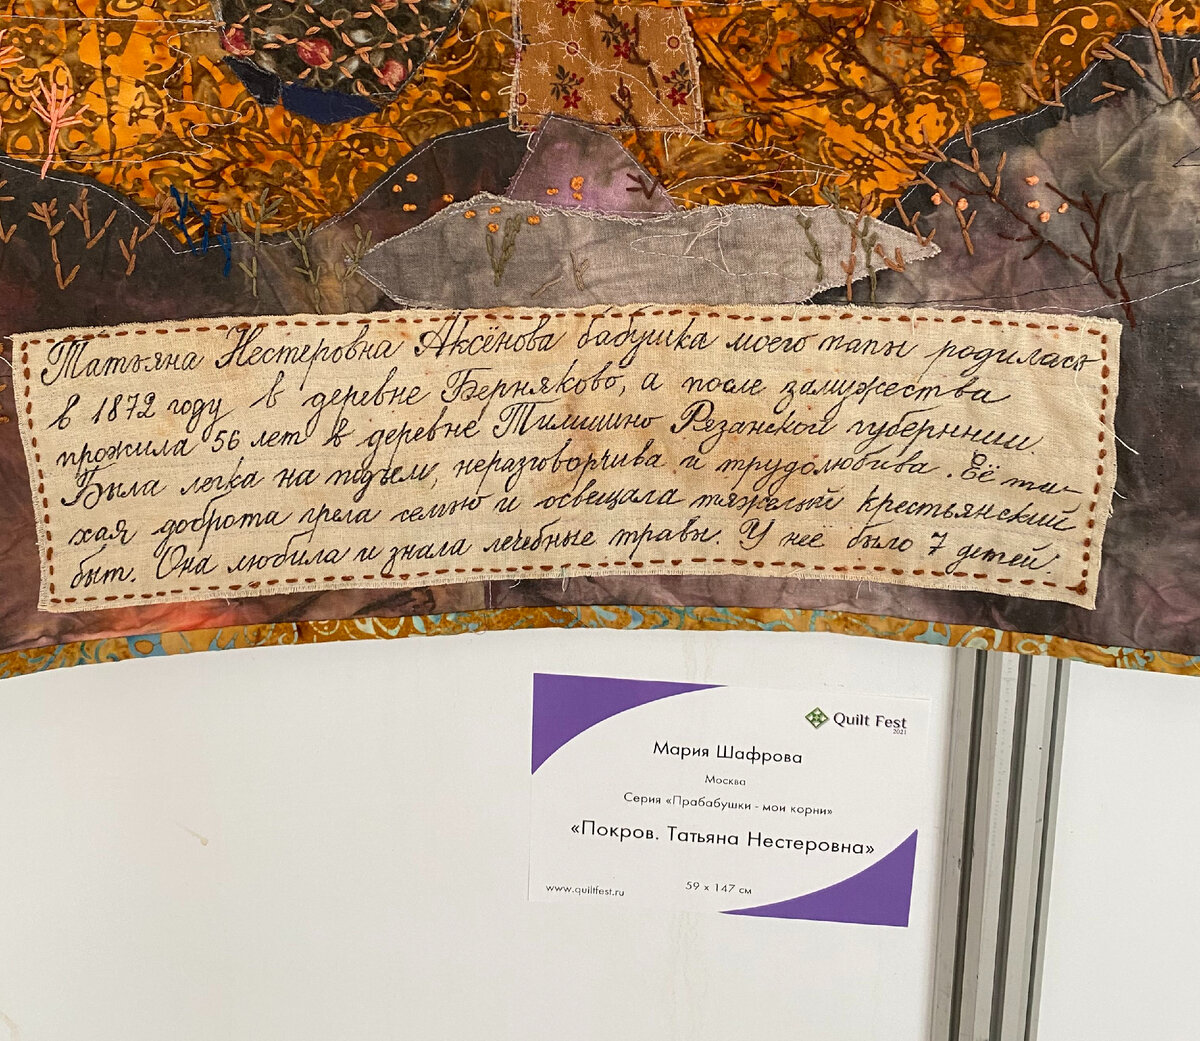 Татьяна Нестеровна Аксёнова бабушка моего папы родилась
в 1872 году в деревне Берняково, а после замужества
прожила 56 лет в деревне Тимшино Рязанской губернии.
Была легка на подъём, неразговорчива и трудолюбива. Её ти-
хая доброта грела семью и освещала тяжёлый крестьянский
быт. Она любила и знала лечебные травы. У неё было 7 детей.
Quilt Fest
2021
Мария Шафрова
Москва
Серия «Прабабушки - мои корни»
«Покров. Татьяна Нестеровна»
www.quiltfest.ru 59 x 147 см